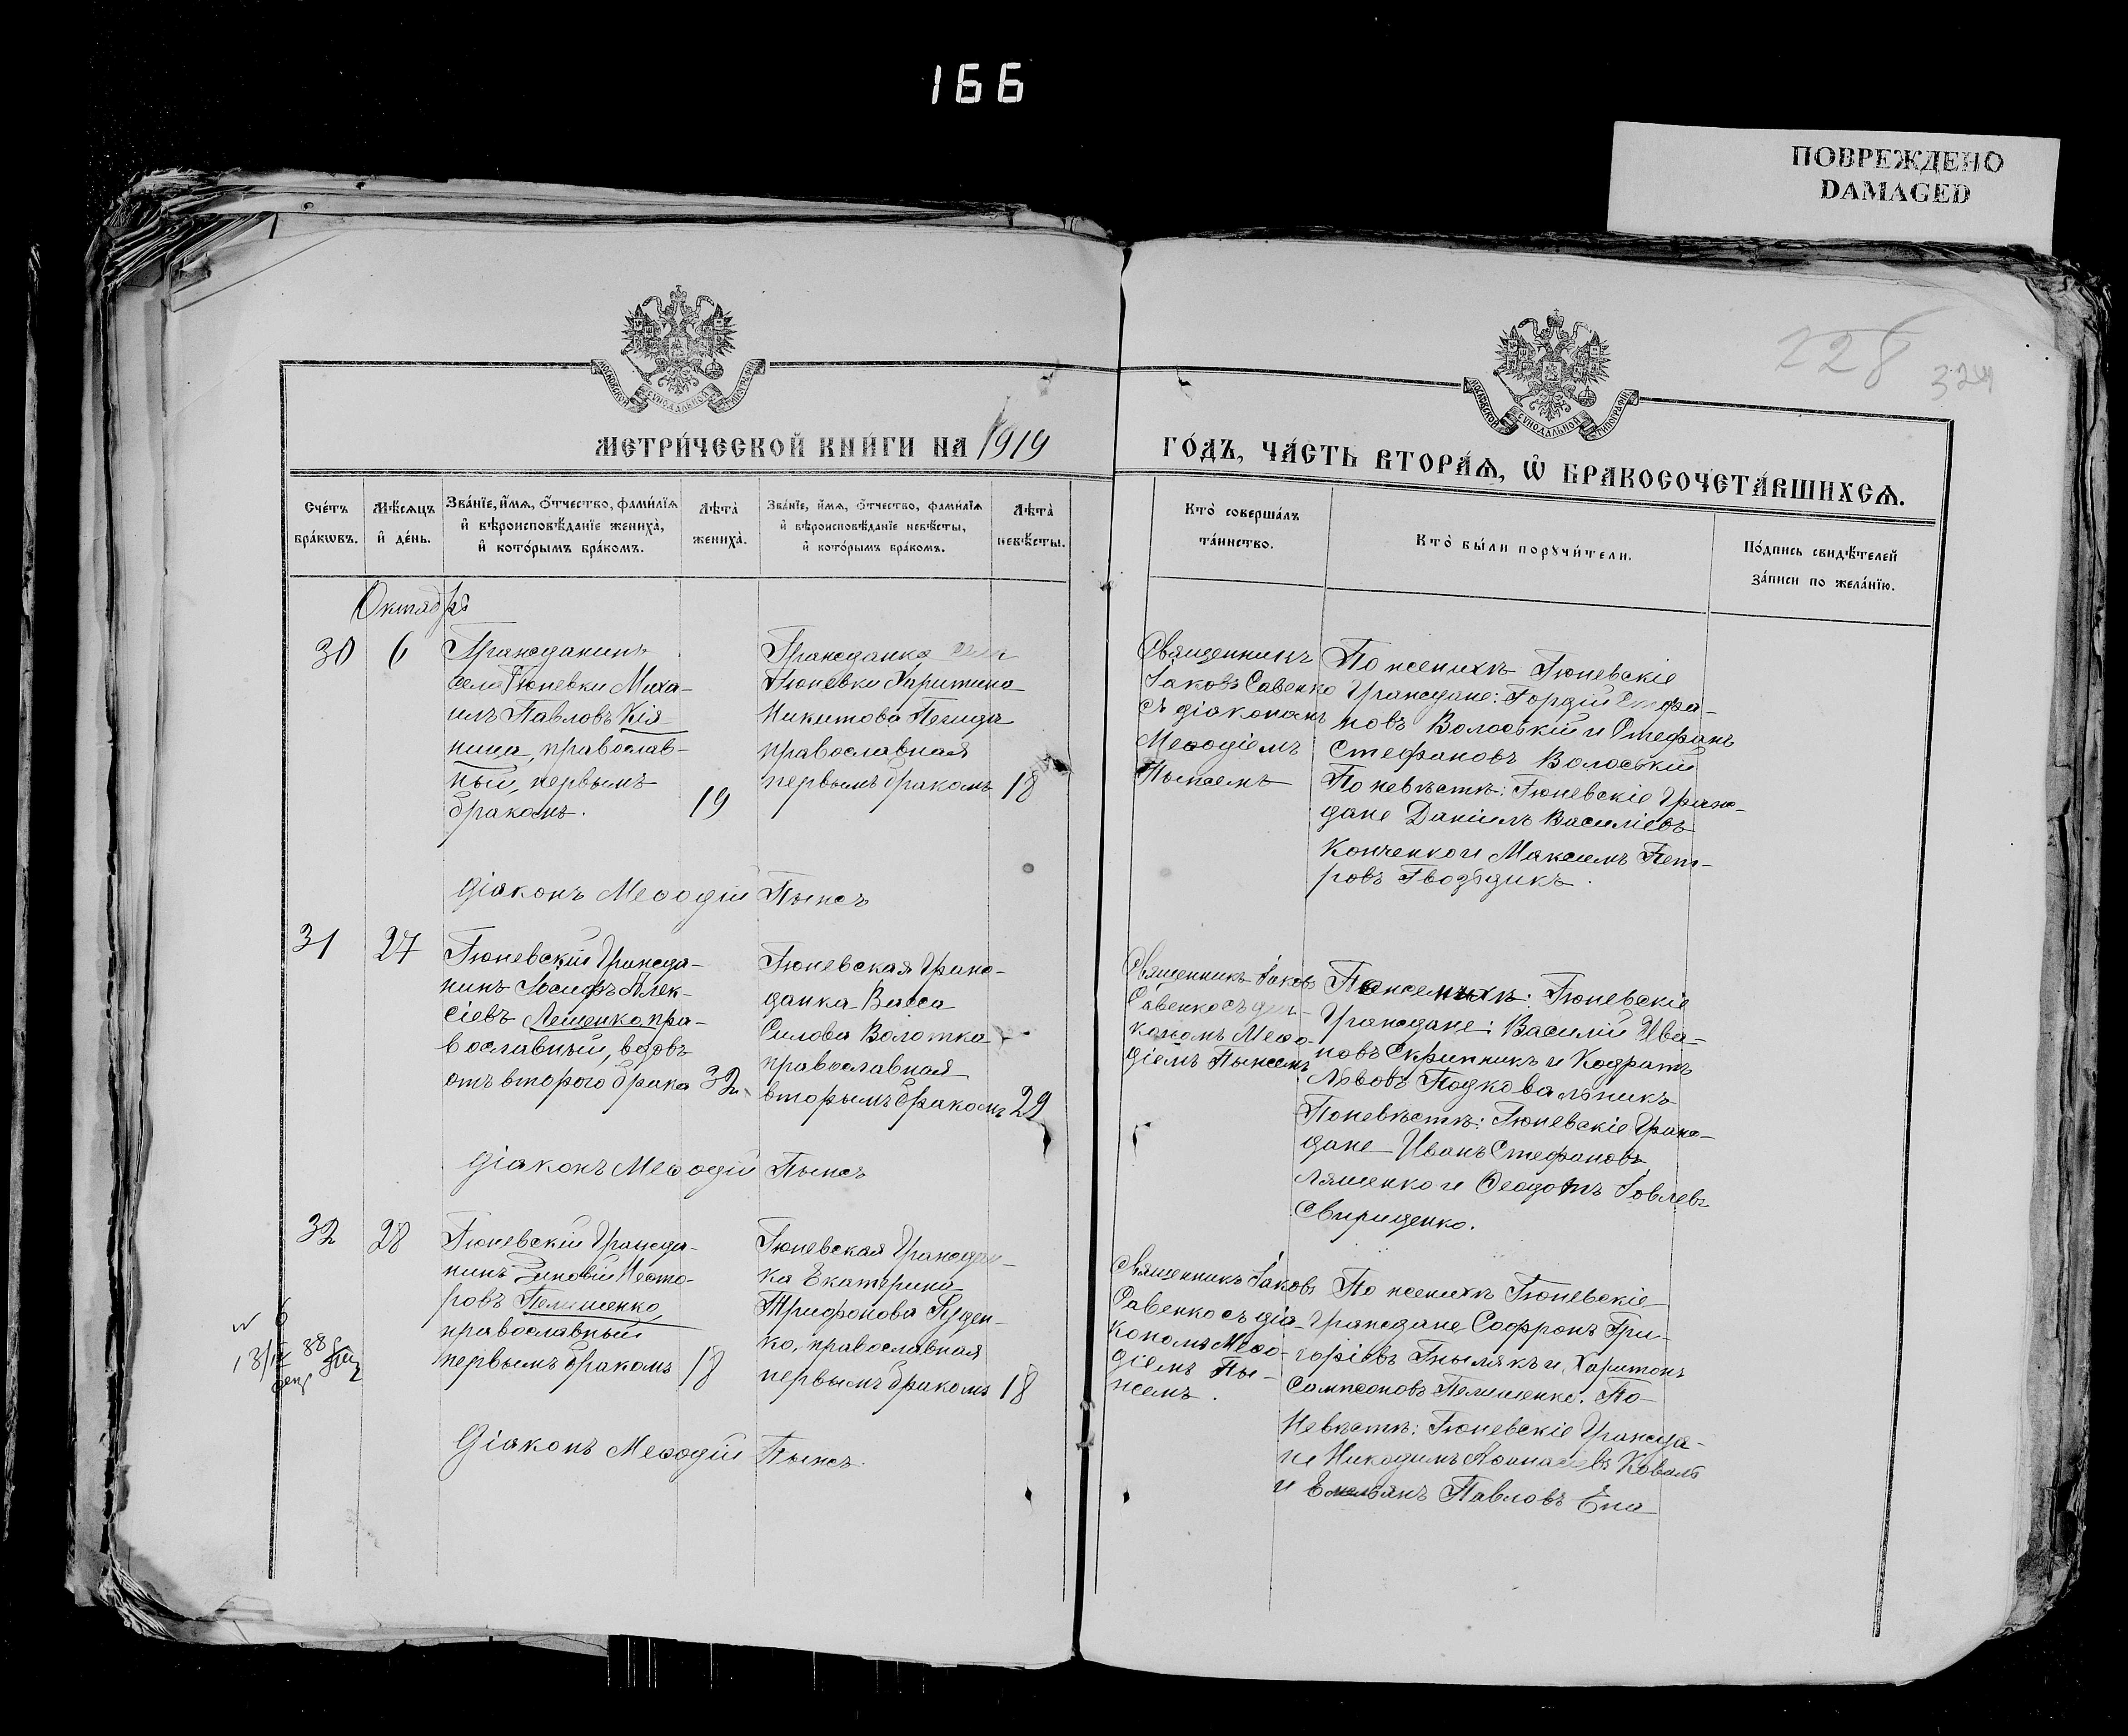 166
ПОВРЕЖДЕНО
DAMAGED
228
324
МОСКОВСКОЙ СУНОДАЛЬНОЙ ТИПОГРАФІИ
МОСКОВСКОЙ СУНОДАЛЬНОЙ ТИПОГРАФІИ
МЕТРИ́ЧЕСКОЙ КНИ́ГИ НА 1919
ГО́ДЪ, ЧА́СТЬ ВТОРА́Ѧ, Ѿ БРАКОСОЧЕТА́ВШИХСѦ.
Сче́тъ
бра́кѡвъ.
Мѣ́сѧцъ
и҆ де́нь.
Зва́нїе, и҆́мѧ, ѻ҆́тчество, фами́лїѧ
и҆ вѣроисповѣ́данїе жениха̀,
и҆ кото́рымъ бра́комъ.
Лѣта̀
жениха̀.
Зва́нїе, и҆́мѧ, ѻ҆́тчество, фами́лїѧ
и҆ вѣроисповѣ́данїе невѣ́сты,
и҆ кото́рымъ бра́комъ.
Лѣта̀
невѣ́сты.
Кто̀ соверша́лъ
та́инство.
Кто̀ бы́ли порꙋчи́тели.
По́дпись свидѣ́телей
за́писи по жела́нїю.
Октябрь
30
6
Гражданинъ
села Гюневки Миха-
илъ Павловъ Кія-
ница, православ-
ный, первымъ
бракомъ.
19
Гражданка села
Гюневки Харитина
Никитова
православная
первымъ бракомъ
18
Священникъ
Іаковъ Савенко
съ діакономъ
Меѳодіемъ
Пыжемъ
По женихѣ Гюневскіе
Граждане: Гордій Стефа-
новъ Волоскій и Стефанъ
Стефановъ Волоскій
По невѣстѣ: Гюневскіе Граж-
дане Даніилъ Василіевъ
Конченко и Максимъ Пет-
ровъ Гвоздикъ.
Діаконъ Меѳодій Пыжъ
31
27
Гюневскій Гражда-
нинъ Іосифъ Алек-
сіевъ Лещенко, пра-
вославный, вдовъ
отъ второго брака
32
Гюневская Граж-
данка Васса
Силова Волотка
православная
вторымъ бракомъ
29
Священникъ Іаковъ
Савенко съ діа-
кономъ Меѳо-
діемъ Пыжемъ
По женихѣ: Гюневскіе
Граждане: Василій Ива-
новъ Скрипникъ и Кодратъ
Львовъ Подковальникъ
По невѣстѣ: Гюневскіе Граж-
дане Иванъ Стефановъ
Лященко и Ѳеодотъ Іовлевъ
Свириденко.
Діаконъ Меѳодій Пыжъ
32
28
Гюневскій Гражда-
нинъ Зиновій Несто-
ровъ Пелишенко,
православный
первымъ бракомъ
18
Гюневская Граждан-
ка Екатерина
Трифонова Руден-
ко, православная
первымъ бракомъ
18
Священникъ Іаковъ
Савенко съ діа-
кономъ Меѳо-
діемъ Пы-
жемъ.
По женихѣ Гюневскіе
Граждане Софронъ Гри-
горіевъ Гнылякъ и Харитонъ
Сампсоновъ Пелишенко. По
Невѣстѣ: Гюневскіе Гражда-
не Никодимъ Аѳанасіевъ Коваль
и Емельянъ Павловъ Епа
Діаконъ Меѳодій Пыжъ.